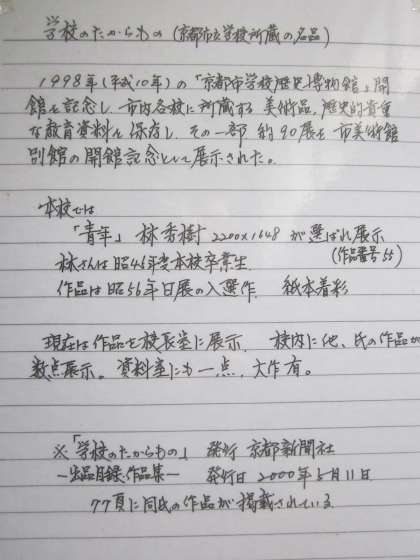 学校のたからもの (京都市立学校所蔵の名品)
1998年(平成10年)の「京都市学校歴史博物館」開
館を記念し、市内各校に所蔵する美術品、歴史的貴重
な教育資料を保存し、その一部 約90展を市美術館
別館の開館記念として展示された。
本校では
「青年」 林秀樹 2200×1648 が選ばれ展示
(作品番号55)
林さんは昭46年度本校卒業生
作品は昭56年日展の入選作 紙本着彩
現在は作品を校長室に展示 校内に他、氏の作品が
数点展示。資料室にも一点、大作有。
※「学校のたからもの」 発行 京都新聞社
－出品目録、作品集－ 発行日 2000年5月11日
77頁に同氏の作品が掲載されている